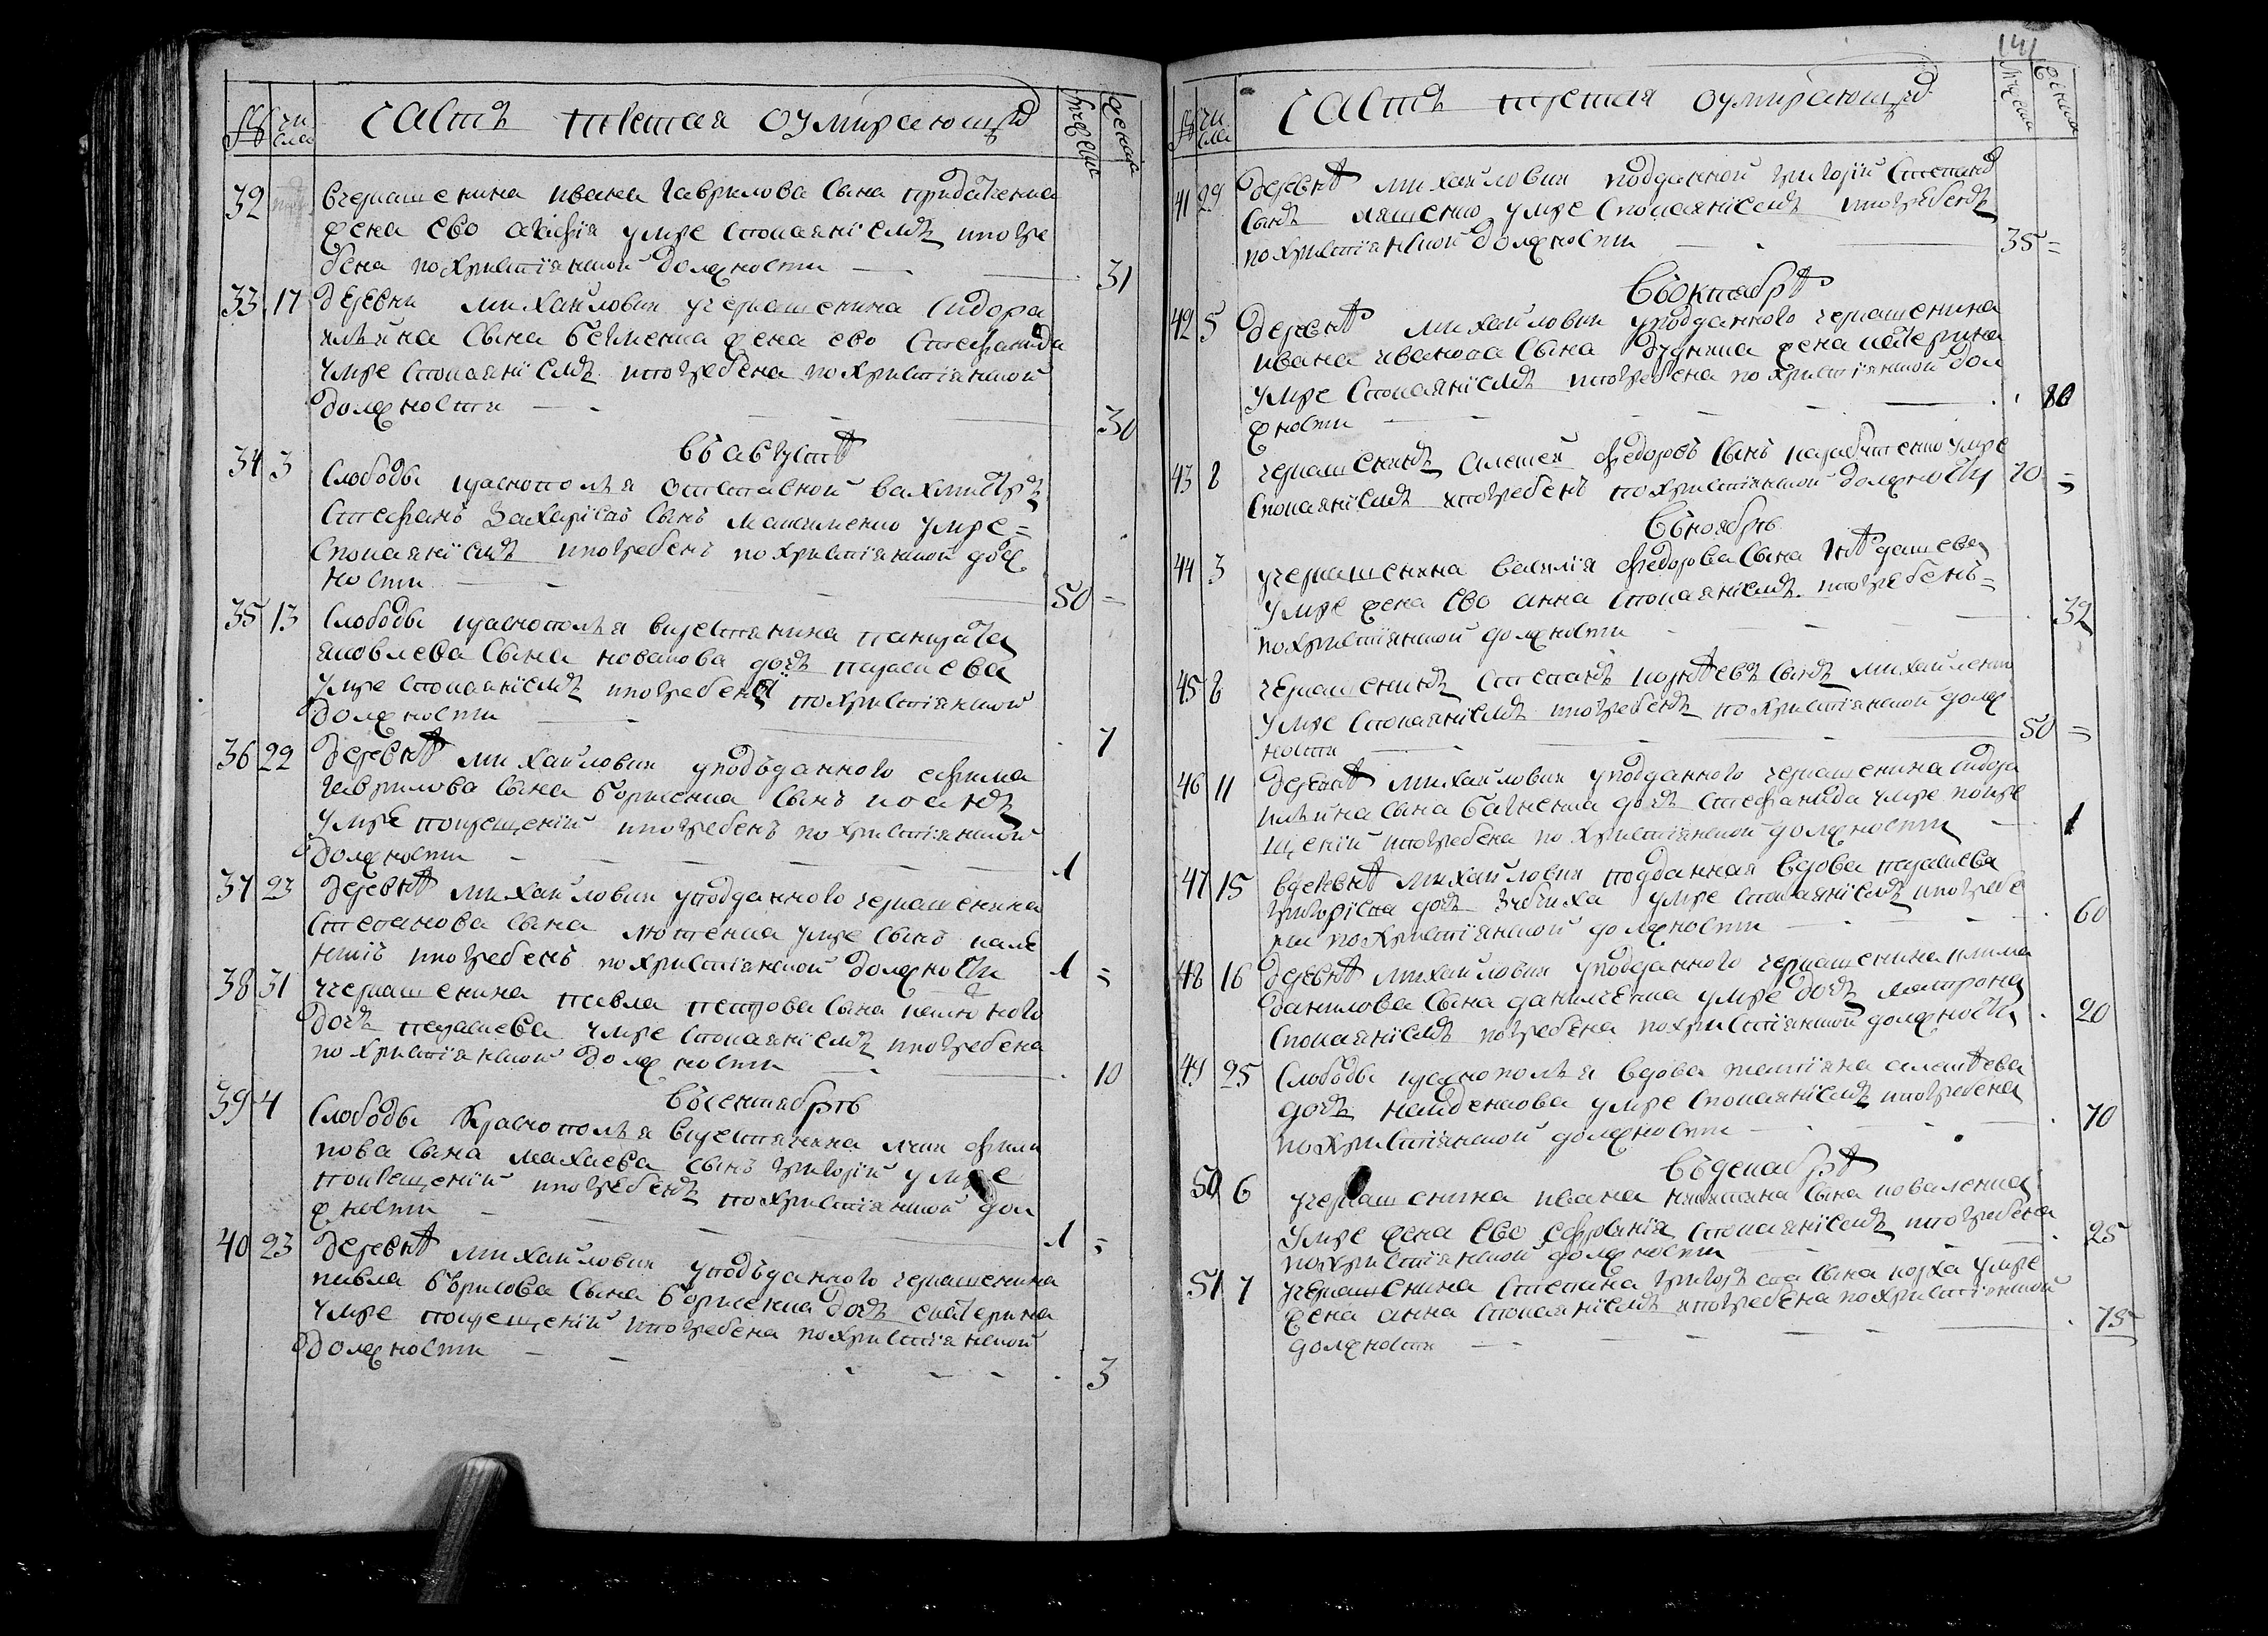 № чи сла часть третая оумирающыхъ мужеска женска
32 вчеркашенина ивана гаврилова сына
жена ево агафія умре спокаяніемъ ипогре
бена похристіянской должности 31
33 17 деревни михайловки учеркашенина сидора
сына жена ево стефанида
умре спокаяніемъ ипогребена похристіянской
должности 30
въавгустѣ
34 3 слободы краснополья отставной вахмистръ
стефанъ захаріевъ сынъ максименко умре
спокаяніемъ ипогребенъ похристіянской долж
ности 50
35 13 слободы краснополья вкрестянина панкрата
яковлева сына новакова дочь параскева
умре спокаяніемъ ипогребена похристіянской
должности 7
36 22 деревнѣ михайловки уподъданного ефима
гаврилова сына борисенка сынъ иоаннъ
умре покрещеній ипогребенъ похристіянской
должности 1
37 23 деревнѣ михайловки уподданного черкашенина
степанова сына лютенка умре сынъ
ипогребенъ похристіянской должности 1
38 31 учеркашенина павла петрова сына
дочь параскева умре спокаяніемъ ипогребена
похристіянской должности 10
въсентябрѣ
39 4 слободы краснополья вкрестянина луки фили
пова сына махаева сынъ григорій умре
покрещеній ипогребенъ похристіянской дол
жности 1
40 23 деревнѣ михайловки уподъданного черкашенина
павла борисова сына борисенка дочь екатерина
умре покрещеній ипогребена похристіянской
должности 3
141
№ чи сла часть третая оумирающыхъ мужеска женска
41 29 деревнѣ михайловки подданной григорій степановъ
сынъ ляшенко умре спокаяніемъ ипогребенъ
похристіянской должности 35
въоктябрѣ
42 5 деревнѣ михайловки уподданного черкашенина
ивана иванова сына дудника жена катерина
умре спокаяніемъ ипогребена похристіянской дол
жности 80
43 8 черкашенинъ алексей федоровъ сынъ умре
спокаяніемъ ипогребенъ похристіянской должности 70
въноябрѣ
44 3 учеркашенина василія федорова сына
умре жена ево анна спокаяніемъ ипогребенъ
похристіянской должности 32
45 8 черкашенинъ степанъ корнѣевъ сынъ михайленко
умре спокаяніемъ ипогребенъ похристіянской долж
ности 50
46 11 деревнѣ михайловки уподданного черкашенина сидора
сына дочь стефанида умре покре
щеній ипогребена похристіянской должности 1
47 15 вдеревнѣ михайловки подданная вдова параскева
григоріева дочь умре спокаяніемъ ипогребе
на похристіянской должности 60
48 16 деревнѣ михайловки уподданного черкашенина клима
данилова сына данилченка умре дочь матрона
спокаяніемъ погребена похристіянской должности 20
49 25 слободы краснополья вдова татіяна алексѣева
дочь найденкова умре спокаяніемъ ипогребена
похристіянской должности 70
въдекабрѣ
50 6 учеркашенина ивана сына коваленка
умре жена ево евфросинія спокаяніемъ ипогребена
похристіянской должности 25
51 7 учеркашенина степана григорьева сына умре
жена анна спокаяніемъ ипогребена похристіянской
должности 75